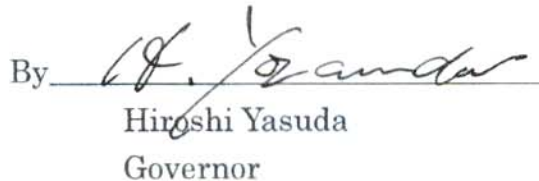 By H. Yasuda
Hiroshi Yasuda
Governor